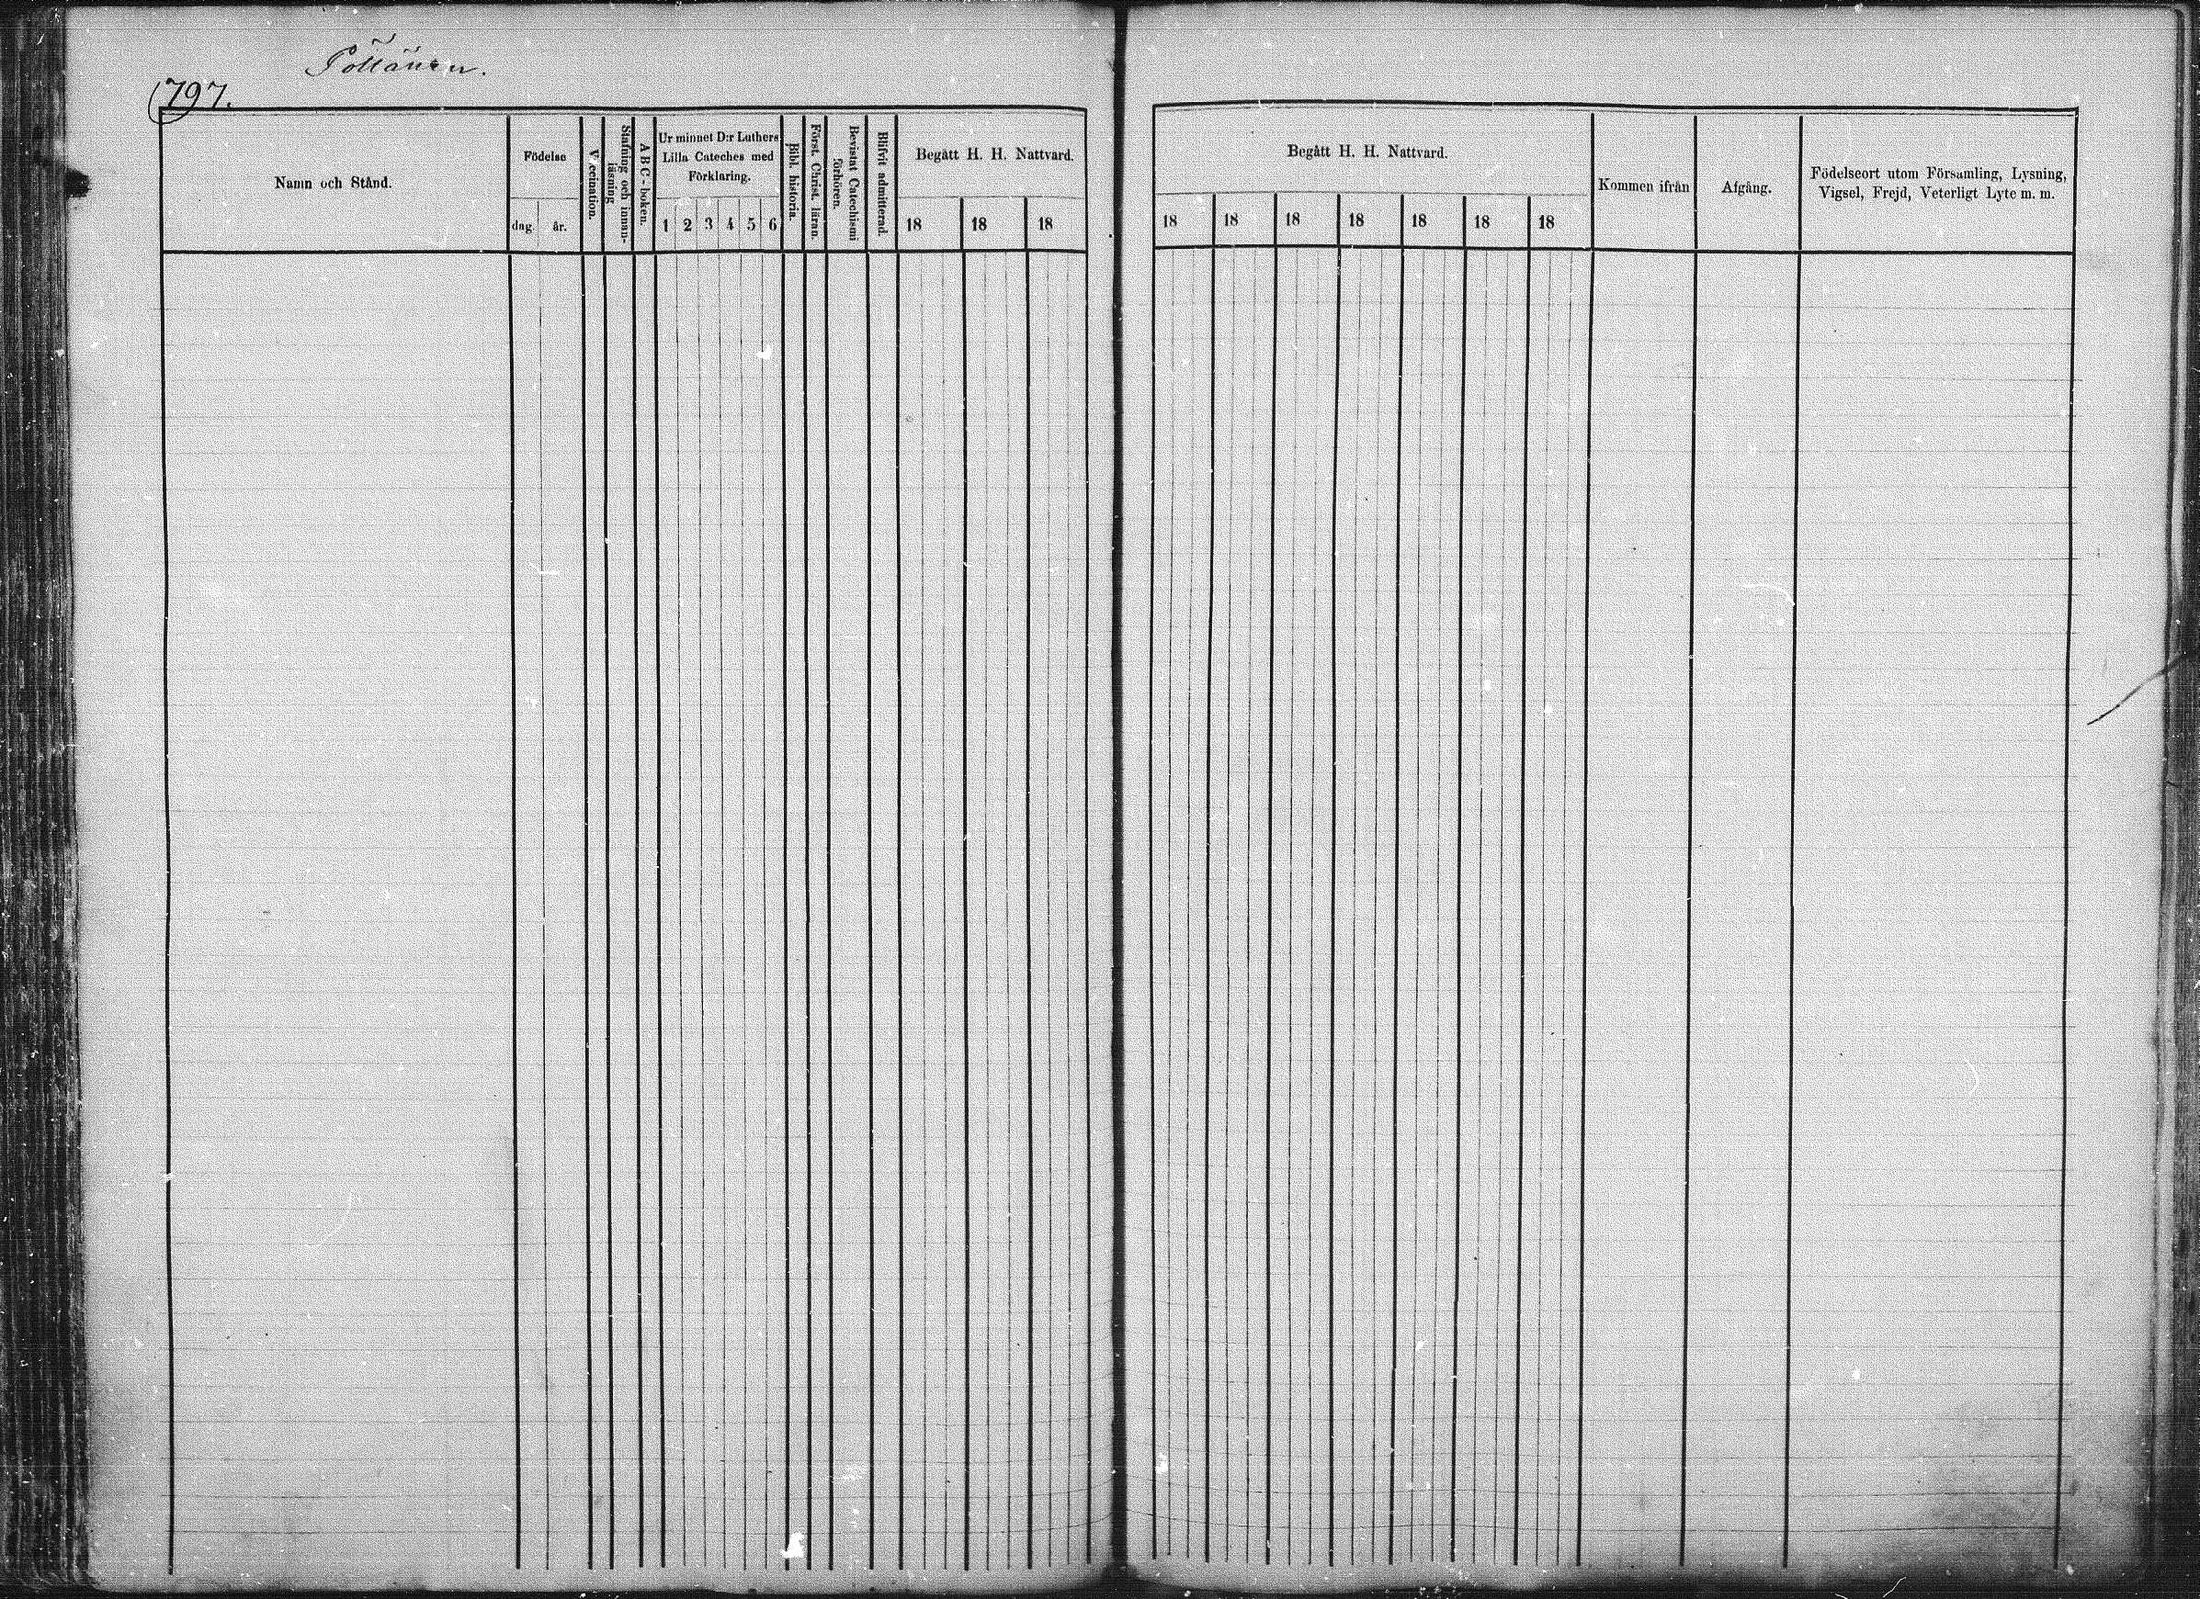 Pöllänen.
797.
Namn och Stånd.
Födelse
dag
år.
Vaccination.
Stafning och innan-
läsning
A B C-boken.
Ur minnet D:r Luthers
Lilla Cateches med
Förklaring.
1 2 3 4 5 6
Bibl. historia.
Först. Christ. läran.
Bevistat Catechismi
förhören.
Blifvit admitterad.
Begått H. H. Nattvard.
18 18 18
Begått H. H. Nattvard.
18 18 18 18 18 18 18
Kommen ifrån
Afgång.
Födelseort utom Församling, Lysning,
Vigsel, Frejd, Veterligt Lyte m. m.